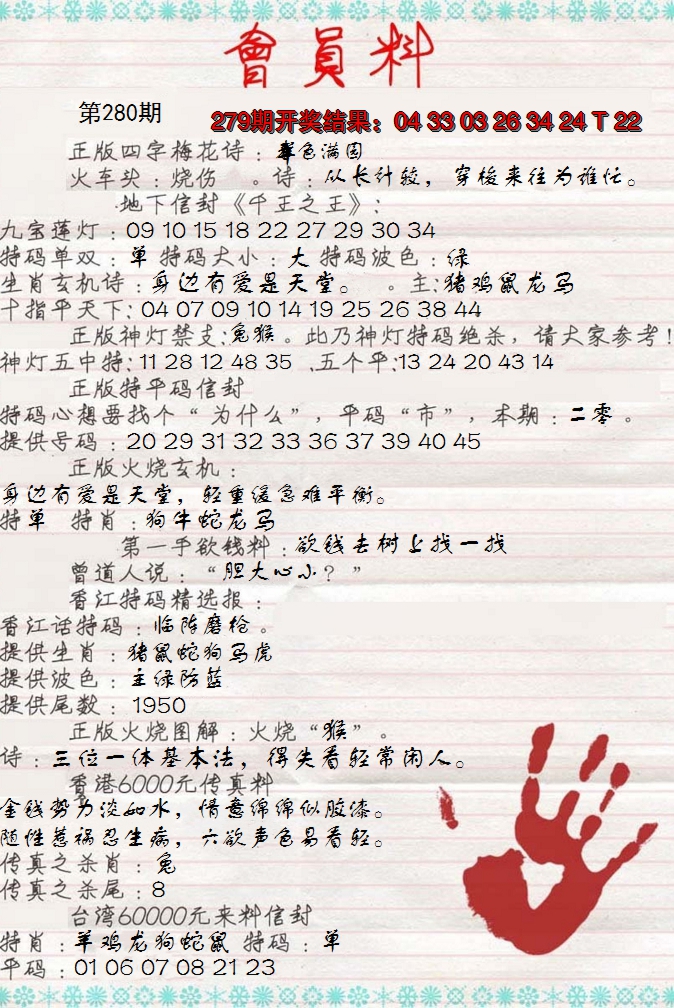 會員料
第280期
279期开奖结果：04 33 03 26 34 24 T 22
正版四字梅花诗：色满园
火车头：烧伤 。诗：从长计较，穿梭来往为谁忙。
地下信封《千王之王》：
九宝莲灯：09 10 15 18 22 27 29 30 34
特码单双：单 特码大小：大 特码波色：绿
生肖玄机诗：身边有爱是天堂。 。主:猪鸡鼠龙马
十指平天下: 04 07 09 10 14 19 25 26 38 44
正版神灯禁支:兔猴。此乃神灯特码绝杀，请大家参考!
神灯五中特: 11 28 12 48 35 .五个平:13 24 20 43 14
正版特平码信封
特码心想要找个“为什么”，平码“市”，本期：二零。
提供号码：20 29 31 32 33 36 37 39 40 45
正版火烧玄机：
身边有爱是天堂，轻重缓急难平衡。
特单 特肖：狗牛蛇龙马
第一手欲钱料：欲钱去树上找一找
曾道人说：“胆大心小？”
香江特码精选报：
香江话特码：临阵磨枪。
提供生肖：猪鼠蛇狗马虎
提供波色：主绿防蓝
提供尾数：1950
正版火烧图解：火烧“猴”。
诗：三位一体基本法，得失看轻常闲人。
香港6000元传真料
金钱势力淡如水，情意绵绵似胶漆。
随性惹祸忍生病，六欲声色易看轻。
传真之杀肖：兔
传真之杀尾：8
台湾60000元来料信封
特肖：羊鸡龙狗蛇鼠 特码：单
平码：01 06 07 08 21 23